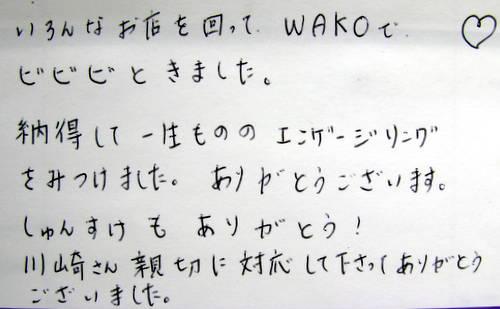 いろんなお店を回って、WAKOで、♡
ビビビときました。
納得して一生ものの エンゲージリング
をみつけました。ありがとうございます。
しゅんすけも ありがとう！
川崎さん親切に対応して下さってありがとう
ございました。